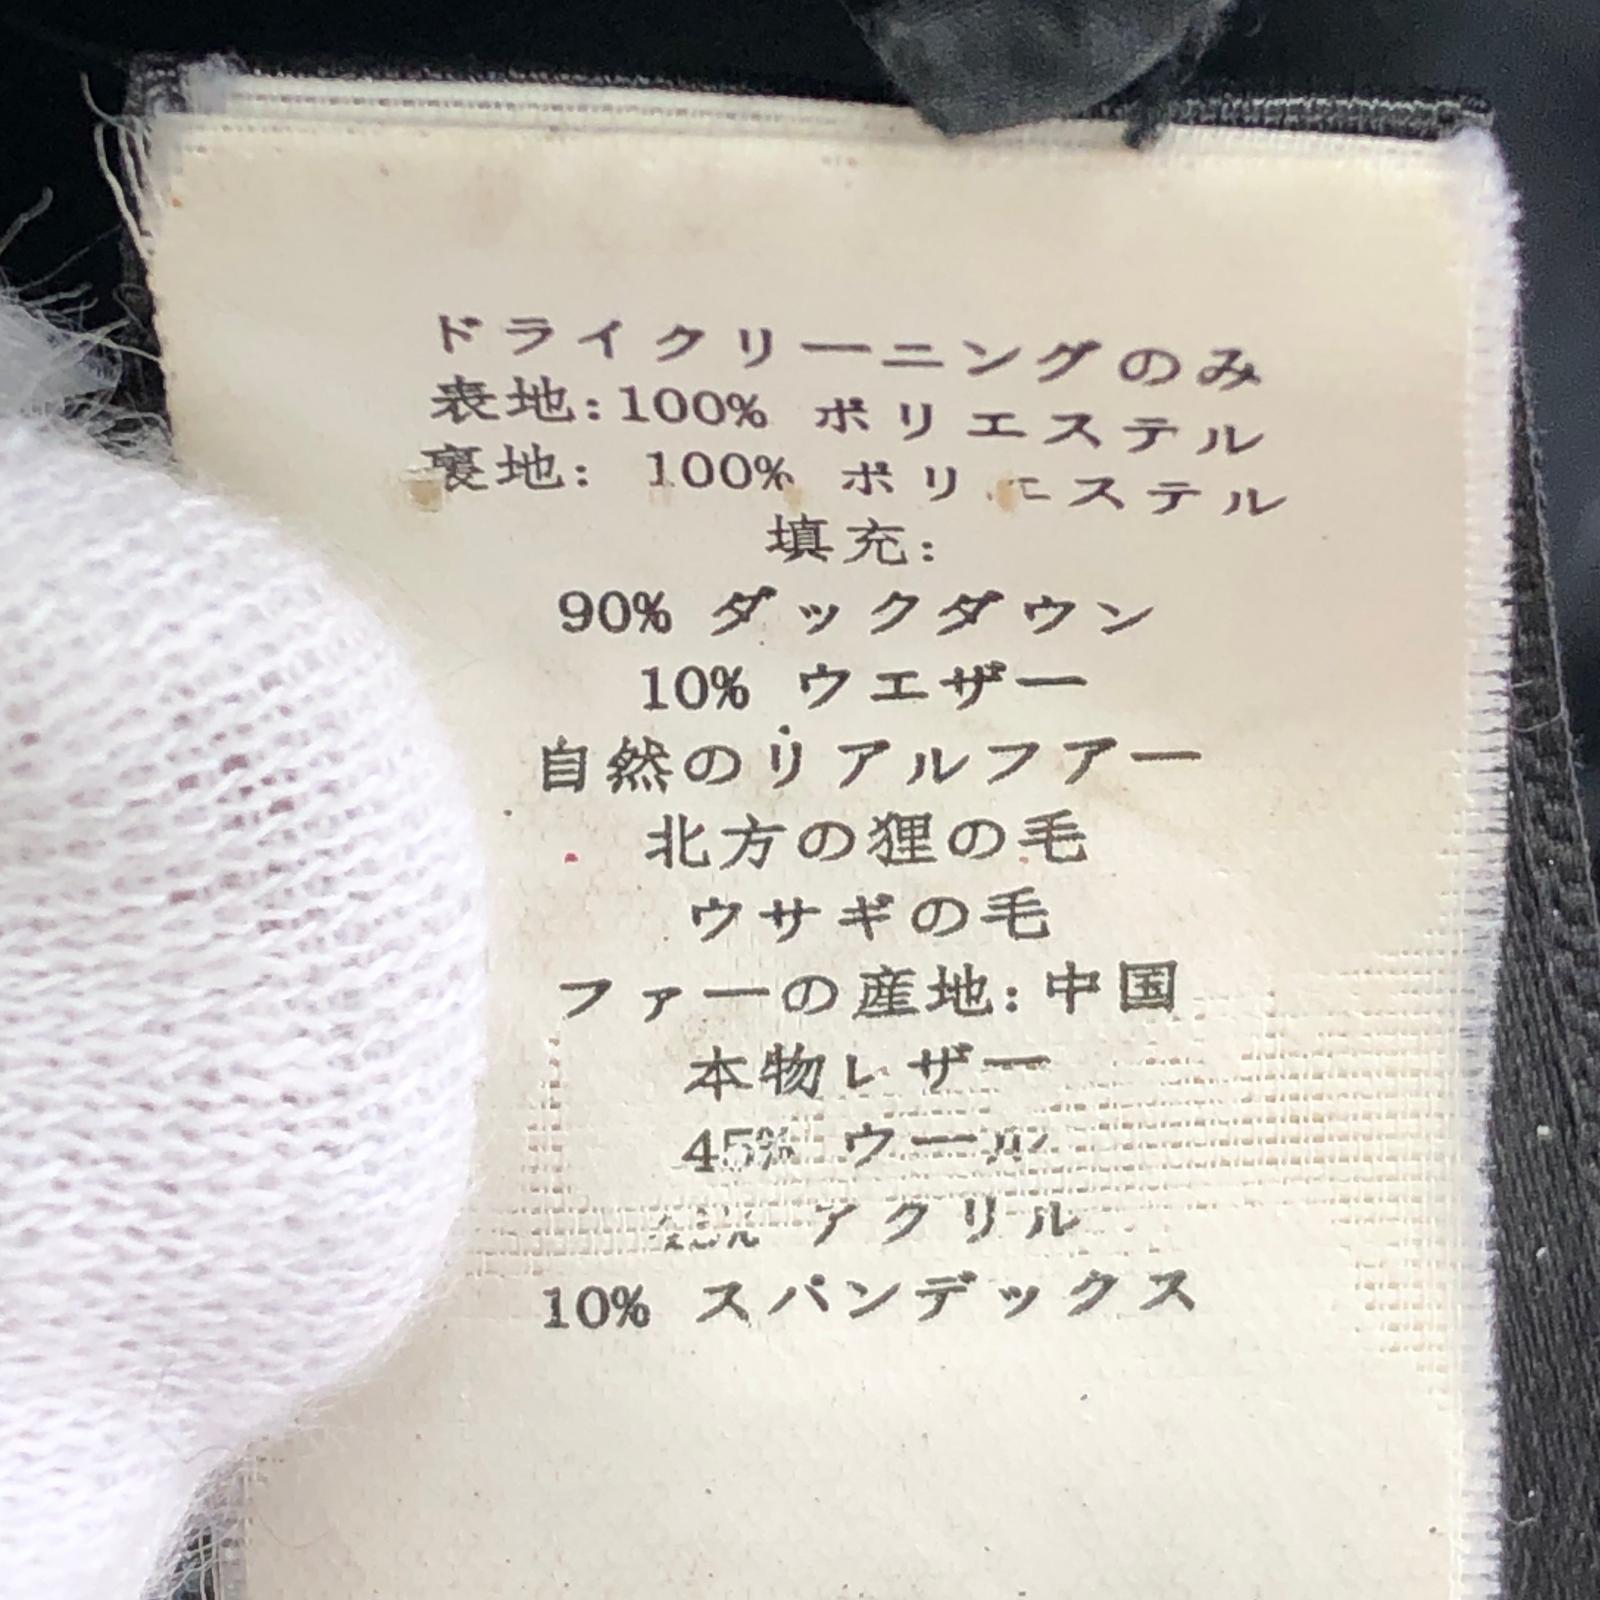 ドライクリーニングのみ
表地:100% ポリエステル
裏地: 100% ポリエステル
填充:
90% ダックダウン
10% ウエザー
自然のリアルフアー
北方の狸の毛
ウサギの毛
ファーの産地:中国
本物レザー
45% ウール
アクリル
10% スパンデックス